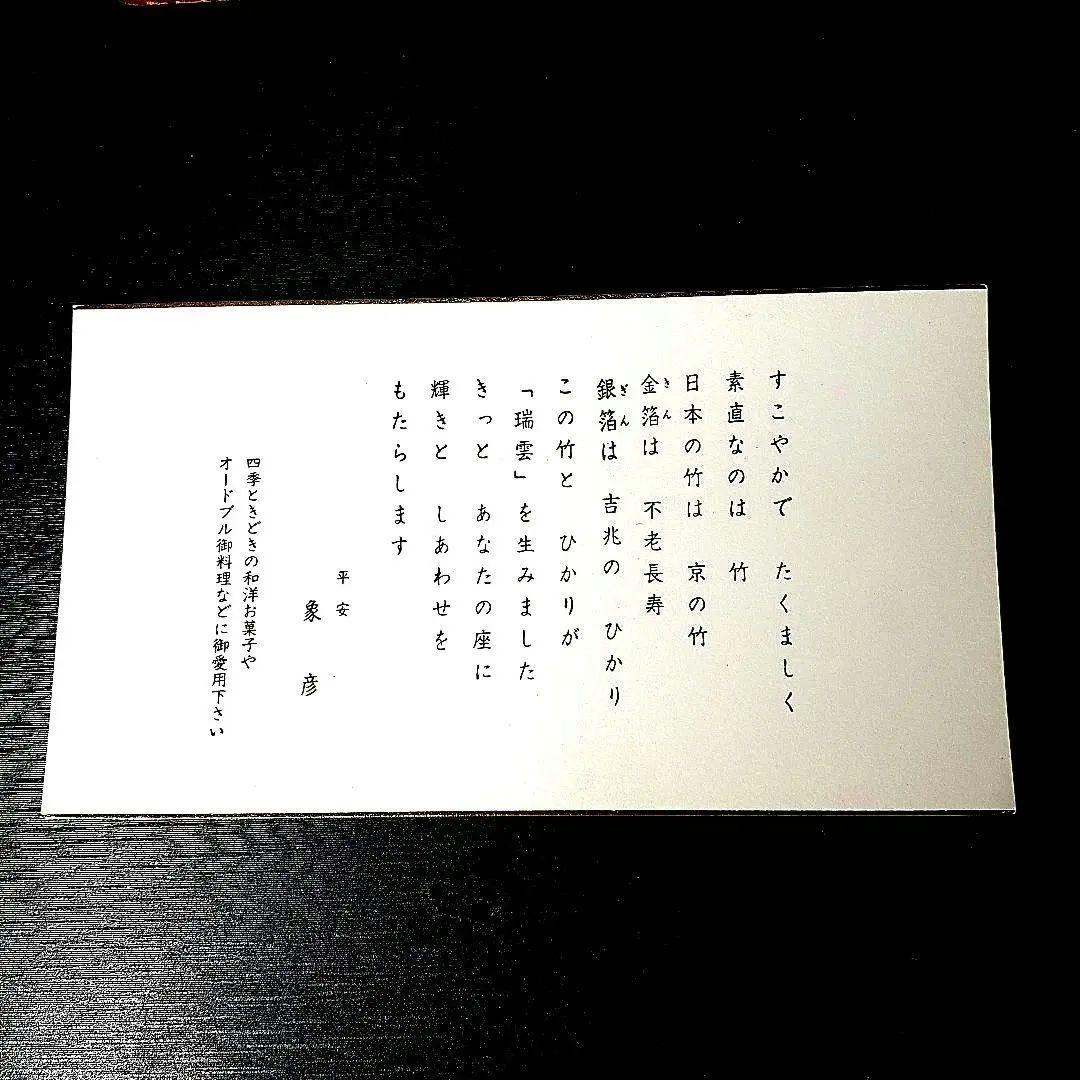 すこやかで　たくましく
素直なのは　竹
日本の竹は　京の竹
金箔は　不老長寿
銀箔は　吉兆の　ひかり
この竹と　ひかりが
「瑞雲」を生みました
きっと　あなたの座に
輝きと　しあわせを
もたらします
平安
象彦
四季ときどきの和洋お菓子や
オードブル御料理などに御愛用下さい